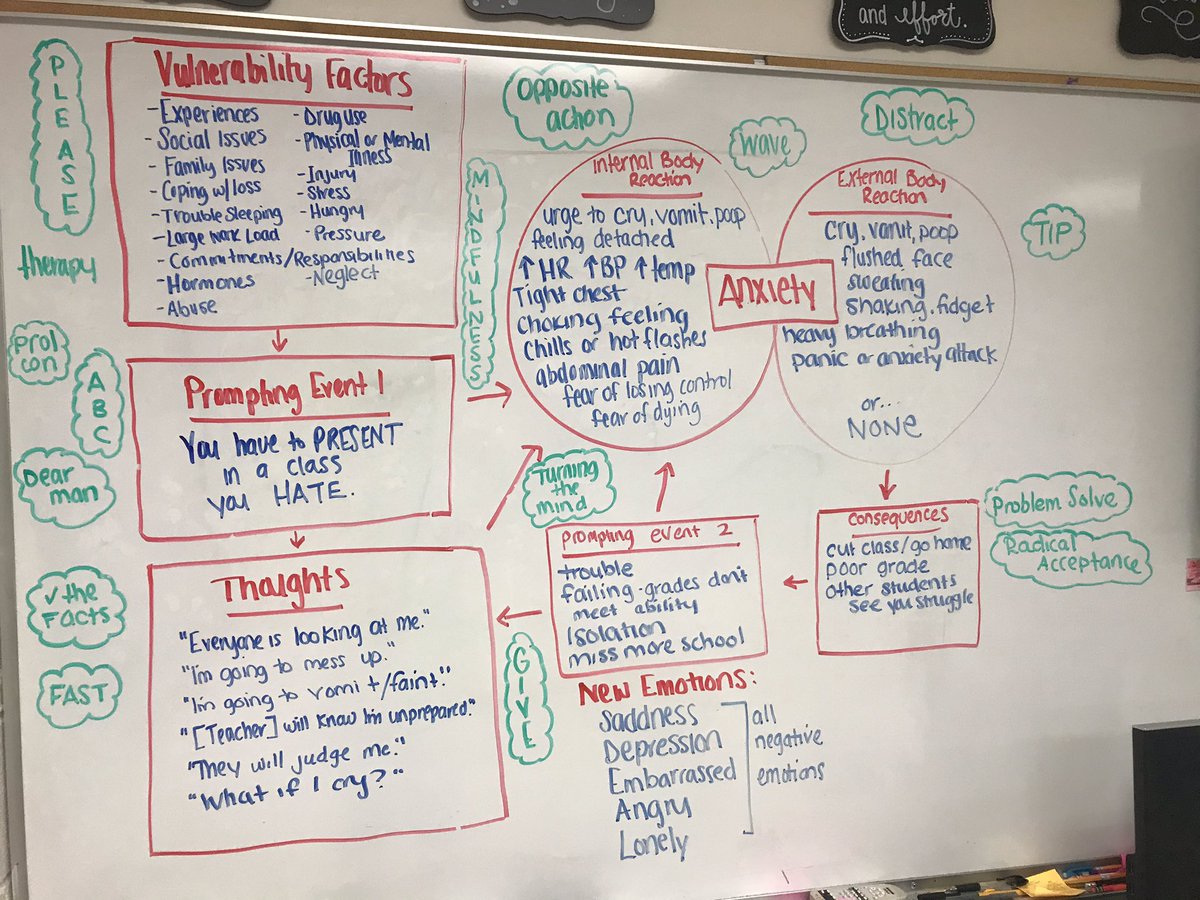 and effort.
PLEASE
therapy
Pro/con
ABC
Dear
man
✓ the
Facts
FAST
Vulnerability Factors
- Experiences
- Social Issues
- Family Issues
- Coping w/loss
- Trouble Sleeping
- Large work Load
- Commitments/Responsibilities
- Hormones
- Abuse
- Drug use
- Physical or Mental
Illness
- Injury
- Stress
- Hungry
- Pressure
- Neglect
Prompting Event 1
You have to PRESENT
in a class
you HATE.
Thoughts
"Everyone is looking at me."
"I'm going to mess up."
"I'm going to vomit/faint."
"[Teacher] will know I'm unprepared."
"They will judge me."
"What if I cry?"
MINDFULNESS
Opposite
action
Wave
Distract
TIP
Internal Body
Reaction
urge to cry, vomit, poop
feeling detached
↑HR ↑BP ↑temp
Tight chest
Choking feeling
Chills or hot flashes
abdominal pain
fear of losing control
fear of dying
Anxiety
External Body
Reaction
Cry, vomit, poop
flushed face
sweating
shaking, fidget
heavy breathing
panic or anxiety attack
or...
NONE
Turning
the
mind
Prompting event 2
trouble
failing-grades don't
meet ability
Isolation
miss more school
GIVE
Consequences
cut class/go home
poor grade
other students
see you struggle
Problem Solve
Radical
Acceptance
New Emotions:
Saddness
Depression
Embarrassed
Angry
Lonely
all
negative
emotions